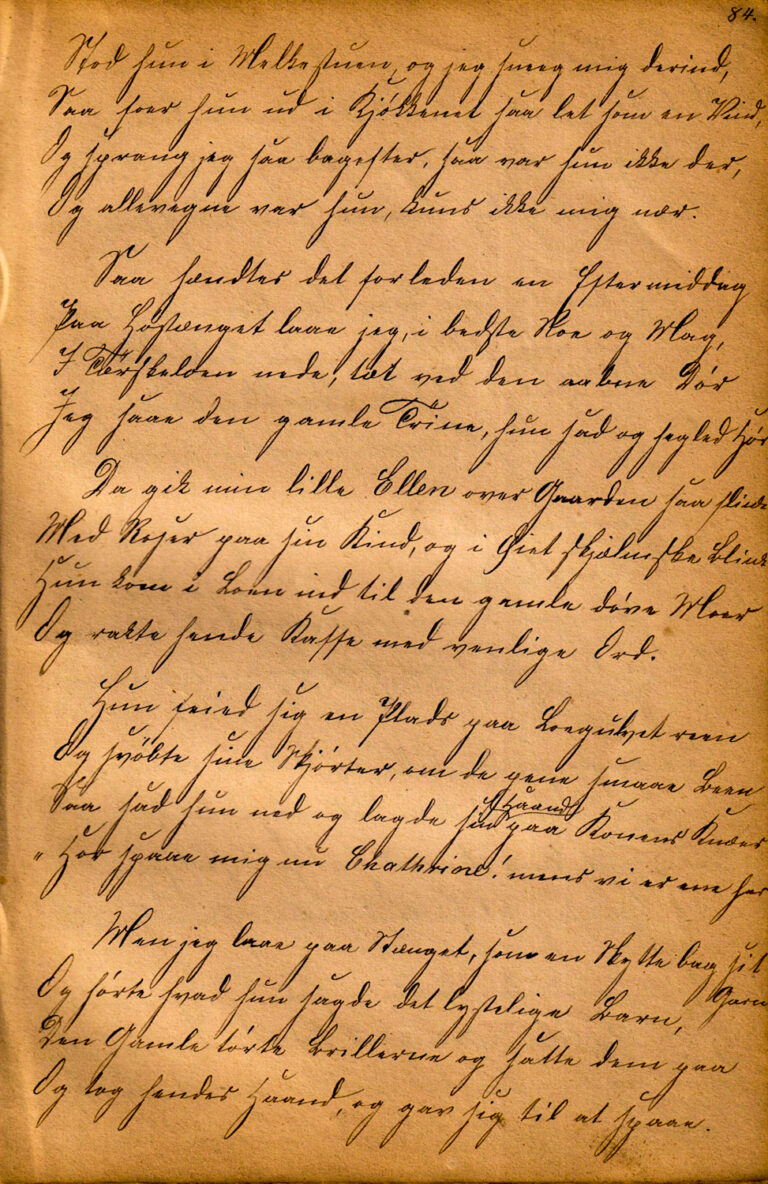 84.
Stod hun i Melkestuen, og jeg sneeg mig derind,
Saa foer hun ud i Kjøkkenet saa let som en Vind,
Og sprang jeg saa bagefter, saa var hun ikke der,
Og allevegne var hun, kuns ikke mig nær.
Saa hændtes det forleden en Eftermiddag
Paa Høstænget laae jeg, i bedste Roe og Mag,
I Tærskeloen nede, tæt ved den aabne Dør
Jeg saae den gamle Trine, hun sad og hegled Hør
Da gik min lille Ellen over Gaarden saa flink
Med Roser paa sin Kind, og i Øiet skjælmske Blink
Hun kom i Loen ind til den gamle døve Moer
Og rakte hende Kaffe med venlige Ord.
Hun feied sig en Plads paa Loegulvet reen
Og svøbte sine Skjørter, om de pene smaae Been
Saa sad hun ned og lagde sin Haand paa Konens Knæer
"Hør spaae mig nu Chathrine! mens vi er ene her
Men jeg laae paa Stænget, som en Skytte bag sit Garn
Og hørte hvad hun sagde det lystelige Barn,
Den Gamle tørte Brillerne og satte dem paa
Og tog hendes Haand, og gav sig til at spaae.